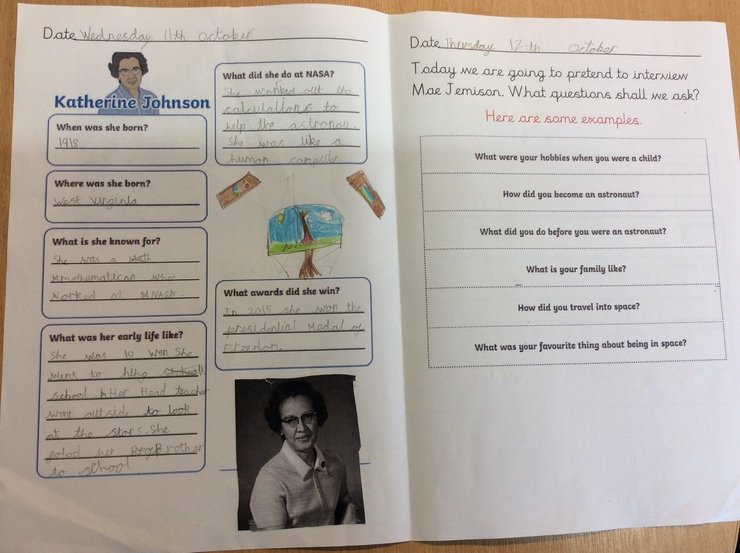 Date Wednesday 11th October
Katherine Johnson
When was she born?
1918
Where was she born?
West Virginia
What is she known for?
She was a
Mmathematican who
worked at NASA.
What was her early life like?
She was 10 wen She
wens to
school Her Head teacher
went outside to look
at the stars. She
her Brother
to school
What did she do at NASA?
She worked out the
calculations to
help the astronau.
She was like a
human computer
What awards did she win?
In 2015 she won the
presidential Medal of
Freedom.
Date Thursday 12th October
Today we are going to pretend to interview
Mae Jemison. What questions shall we ask?
Here are some examples.
What were your hobbies when you were a child?
How did you become an astronaut?
What did you do before you were an astronaut?
What is your family like?
How did you travel into space?
What was your favourite thing about being in space?